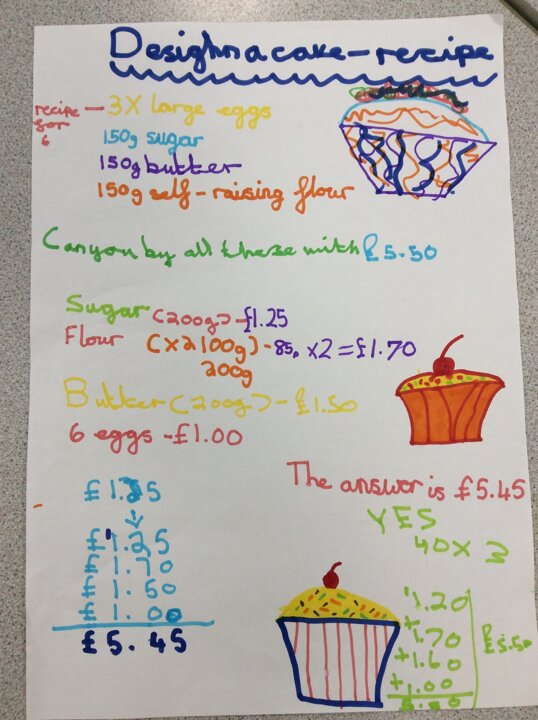 Desighn a cake-recipe
recipe for 6 — 3X large eggs
150g sugar
150g butter
150g self-raising flour
Can you by all these with £5.50
Sugar (200g) - £1.25
Flour (X2 100g) - 85p X2 = £1.70
200g
Butter (200g) - £1.50
6 eggs - £1.00
The answer is £5.45
YES
40 X 3
£1.25
£1.25
£1.70
£1.50
£1.00
£5.45
1.20
+1.70
+1.60
+1.00
£5.50